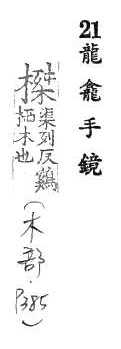 21龍龕手鏡
榤渠列反鷄栖木也(木部·P385)